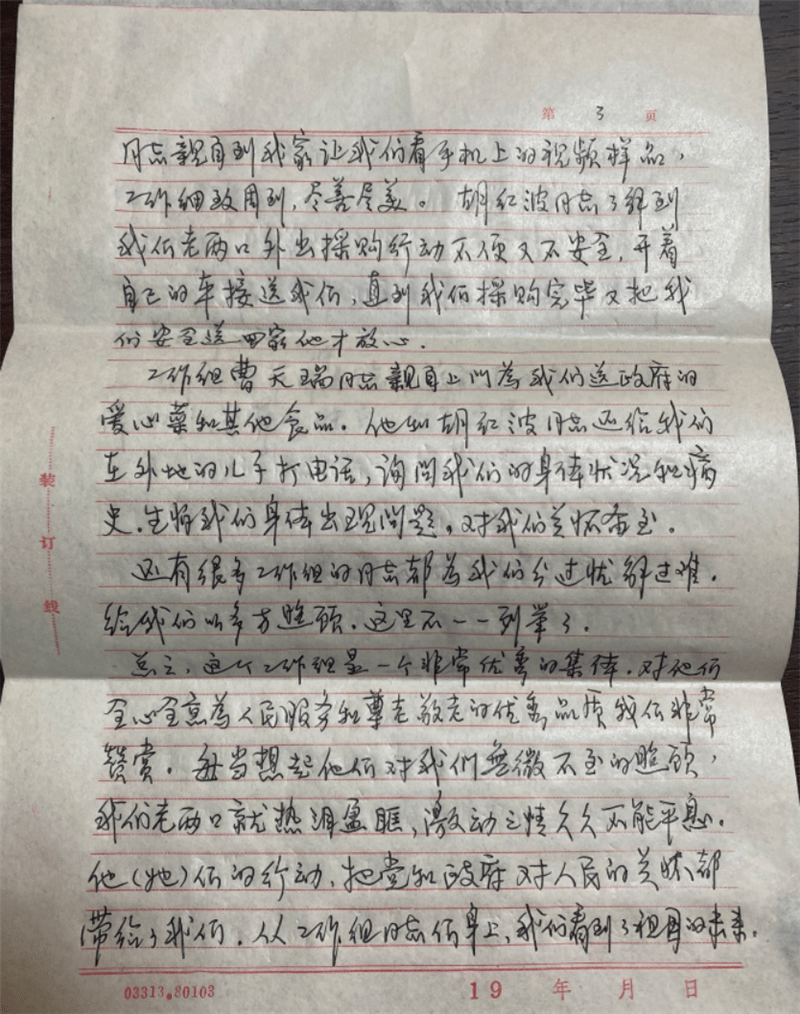 第 3 页
同志親自到我家让我们看手机上的视频样品，
工作细致周到，尽善尽美。胡红波同志了解到
我们老两口外出採购行动不便又不安全，开着
自己的车接送我们，直到我们採购完毕又把我
们安全送回家他才放心．
工作组曹天瑞同志親自上门為我们送政府的
爱心菜和其他食品．他和胡红波同志还给我们
在外地的儿子打电话，询问我们的身体状况和病
史．生怕我们身体出现问题，对我们关怀备至．
还有很多工作组的同志都為我们分过忧解过难．
给我们以多方照顾．这里不一一列举了．
总之，这个工作组是一个非常优秀的集体．对他们
全心全意為人民服务和尊老敬老的优秀品质我们非常
赞赏．每当想起他们对我們無微不至的照顾，
我们老两口就热泪盈眶，激动之情久久不能平息．
他(她)们的行动，把党和政府对人民的关怀都
带给了我们．从工作组同志们身上，我们看到了祖国的未来．
装订线
03313.80103
19 年 月 日